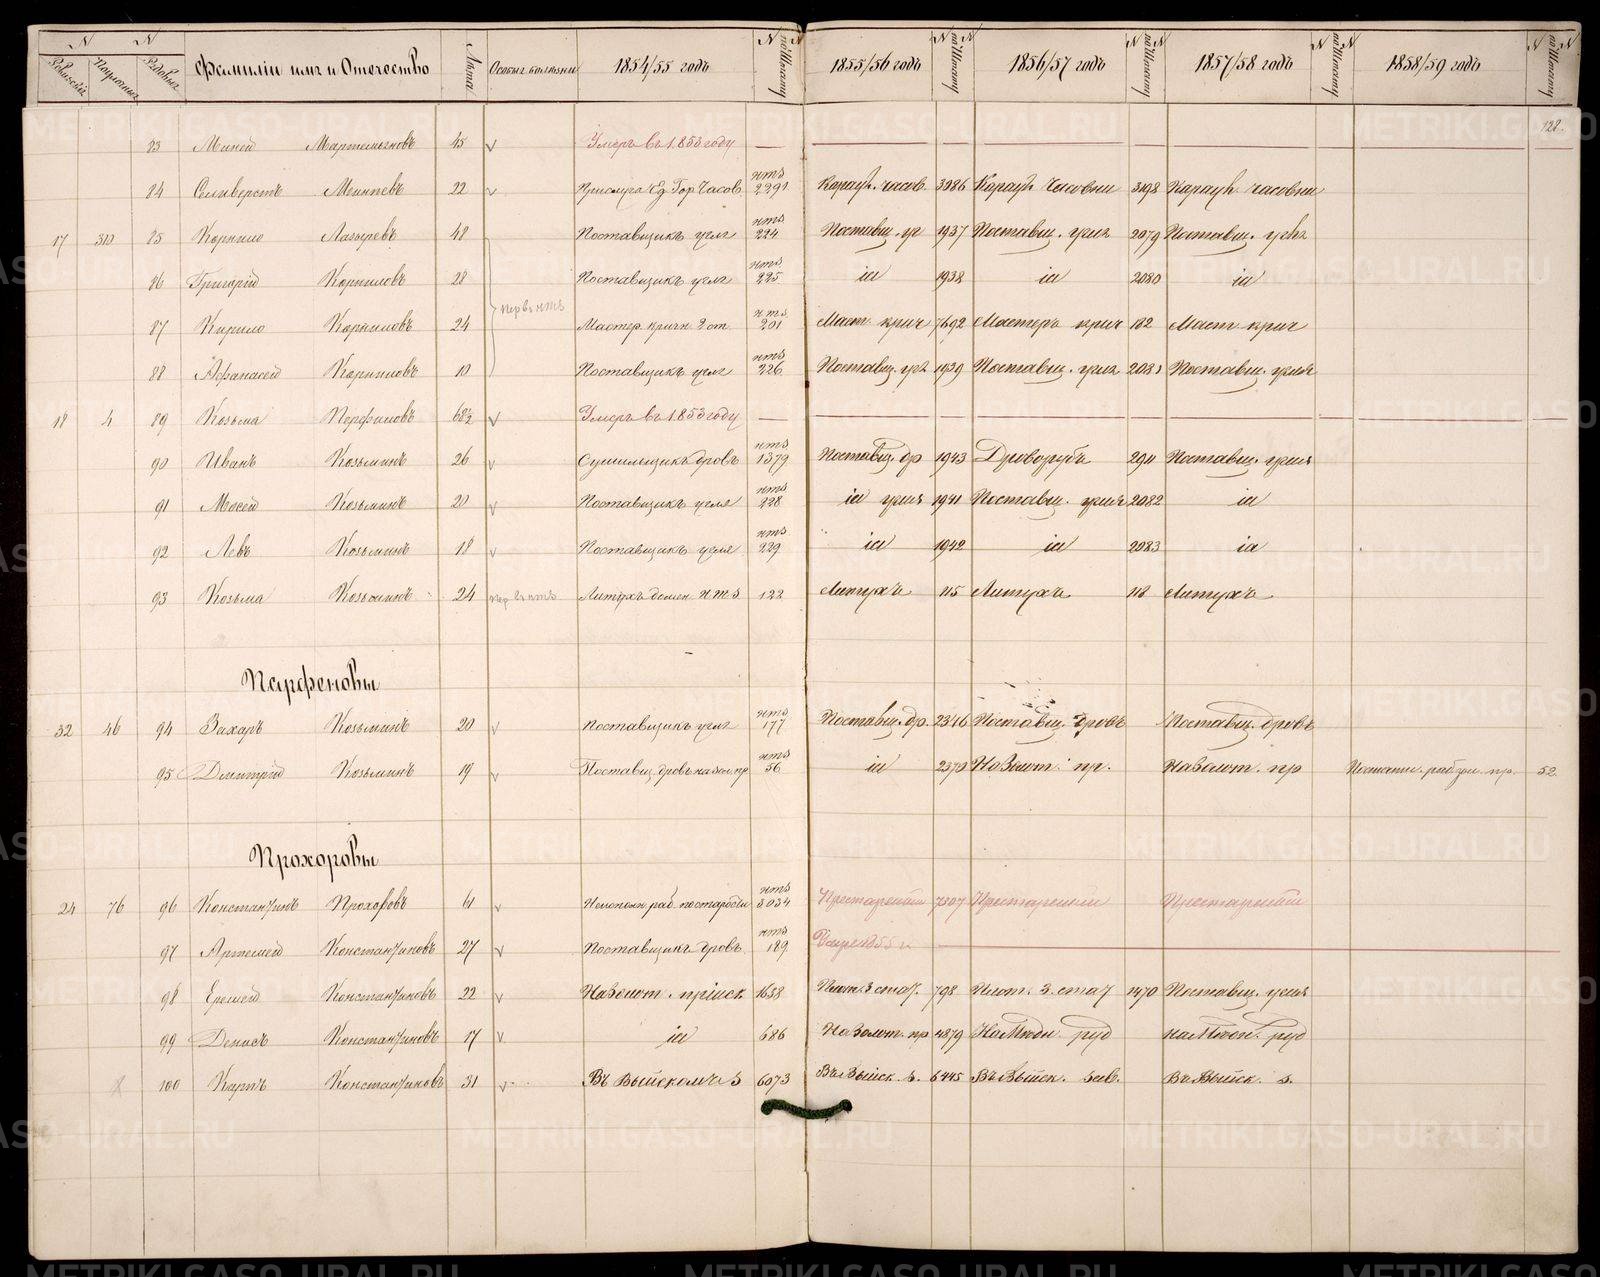 N N N по Штату N N по Штату N N по Штату N N по Штату N N по Штату N
Ревизскiй Посемейный Рядовыя Фамилiи имя и Отечество Лѣта Особыя болѣзни 1854/55 годъ 1855/56 годъ 1856/57 годъ 1857/58 годъ 1858/59 годъ
128.
83 Миней Мартемьяновъ 45 Умеръ въ 1853 году
84 Селиверстъ Минѣевъ 22 нтз 2291 Караул. часов. 3986 Караул. часовни 3198 Караул. часовни
17 310 85 Корнило Лазаревъ 48 Поставщикъ угля нтз 224 Поставщ. уг 1937 Поставщ. угля 2079 Поставщ. угля
86 Григорiй Корниловъ 28 Поставщикъ угля нтз 225 iд 1938 iд 2080 iд
Пер въ нтз
87 Кирило Корниловъ 24 Мастер. кричн. 2 от. нтз 201 Маст. крич 7692 Мастеръ крич 182 Маст крич
88 Афанасей Корниловъ 19 Поставщикъ угля нтз 226 Поставщ. уг 1939 Поставщ. угля 2081 Поставщ. угля
18 4 89 Козьма Перфиловъ 68½ Умеръ въ 1853 году
90 Иванъ Козьминъ 26 Сушильщикъ дровъ нтз 1379 Поставщ. др 1943 Дроворубъ 294 Поставщ. угля
91 Мосей Козьминъ 20 Поставщикъ угля нтз 228 iд угля 1941 Поставщ. угля 2082 iд
92 Левъ Козьминъ 18 Поставщикъ угля нтз 229 iд 1942 iд 2083 iд
93 Козьма Козьминъ 24 Пер. въ нтз Литухъ домен. нтз 122 Литухъ 115 Литухъ 118 Литухъ
Парфеновы
32 46 94 Захаръ Козьминъ 20 Поставщикъ угля нтз 177 Поставщ. др. 2346 Поставщ. дровъ Поставщ. дровъ
95 Дмитрiй Козьминъ 19 Поставщ. дровъ на зол. пр нтз 56 iд 2379 На Золот. пр. На золот. пр 52.
Прохоровы
24 76 96 Константинъ Прохоровъ 61 нтз 3034 Престарелый 7307 Престарелый Престарелый
97 Артемей Константиновъ 27 Поставщикъ дровъ нтз 189
98 Еремей Константиновъ 22 На Золот. прiиск 1658 Плот. 3 стат. 798 Плот. 3. стат 1470 Поставщ. угля
99 Денисъ Константиновъ 17 iд 686 На Золот. пр 4879 На Мѣдн. руд на Мѣдн. руд
100 Карпъ Константиновъ 31 Въ Выйскомъ з 6073 Въ Выйск. з. 6445 Въ Выйск. зав. Въ Выйск. з.
METRIKI.GASO-URAL.RU